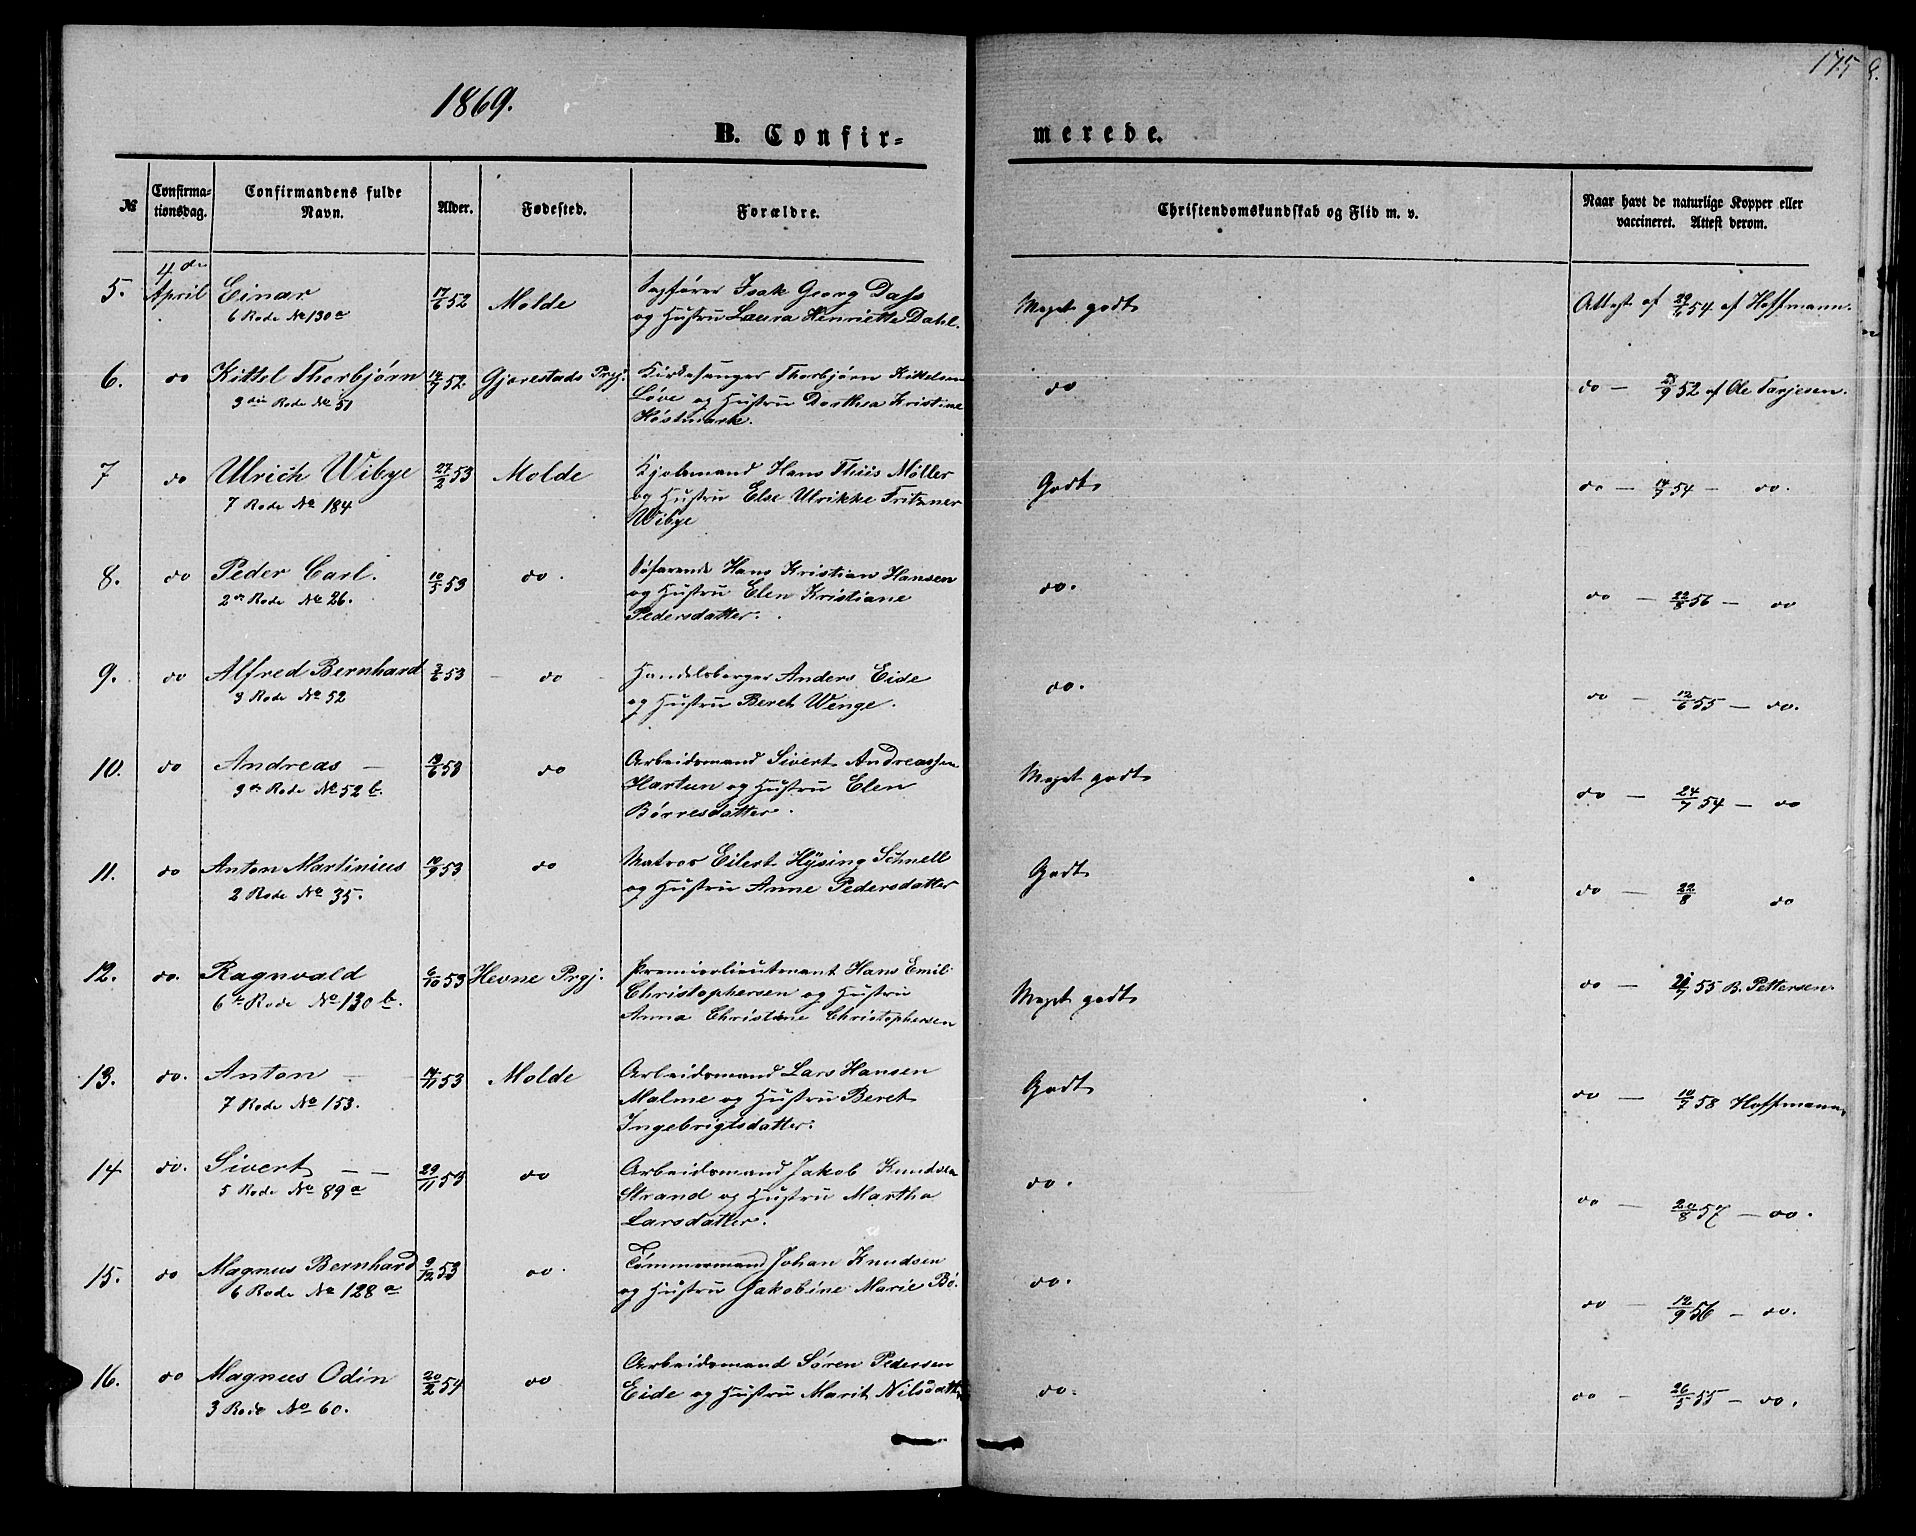 1869.
175
B. Confir=
merede.
№
Confirma-
tionsdag.
Confirmandens fulde
Navn.
Alder.
Fødested.
Forældre.
Christendomskundskab og Flid m. v.
Naar havt de naturlige Kopper eller
vaccineret. Attest derom.
5. 4de April Einar 17/6 52 Molde Sagfører Isak Georg Dass Meget godt Attest af 54 af Hoffmann.
6 Rode No 130a og Hustru Laura Henriette Dahl.
6. do Kittel Thorbjørn 14/7 52. Gjerestads Prgj. Kirkesanger Thorbjørn Kittelsen do do — 9 52 af Ole Tarjesen.
3die Rode No 51 Løve og Hustru Dorthea Kristine
Høstmark.
7 do Ulrich Wibye 27/2 53 Molde Kjøbmand Hans Thiis Møller Godt do — 14/7 54 — do.
7 Rode No 184 og Hustru Else Ulrikke Fritzner
Wibye
8. do Peder Carl. 10/5 53 do. Søfarende Hans Kristian Hansen do. do — 22/8 56 — do
2den Rode No 26. og Hustru Elen Kristiane
Pedersdatter.
9. do Alfred Bernhard 3/6 53 — do Handelsborger Anders Eide do. do — 12/6 55 — do.
3 Rode No 52 og Hustru Beret Wenge.
10. do Andreas — 53 do Arbeidsmand Sivert Andreassen Meget godt do — 24/7 54 — do
3die Rode No 52 b. Hartun og Hustru Elen
Børresdatter.
11. do Anton Martinius 10/9 53 do Matros Eilert Hysing Schnell Godt do — 22/8 do
2 Rode No 35. og Hustru Anne Pedersdatter
12. do. Ragnvald 6/10 53 Hevne Prgj. Premierlieutenant Hans Emil Meget godt do — 55 B. Pettersen.
6te Rode No 130 b. Christophersen og Hustru
Anna Christine Christophersen
13. do. Anton — 14/11 53 Molde Arbeidsmand Lars Hansen Godt do — 10/7 58 Hoffmann.
7 Rode No 153. Malme og Hustru Beret
Ingebrigtsdatter.
14 do. Sivert — — 29/11 53 do Arbeidsmand Jakob Knudsen do. do — 20/8 57 — do.
5 Rode No 89a Strand og Hustru Martha
Larsdatter.
15. do Magnus Bernhard 9/12 53 do. Tømmermand Johan Knudsen do. do — 12/9 56 — do.
6 Rode No 128a og Hustru Jakobine Marie Bø.
16. do Magnus Odin 20/2 54 do Arbeidsmand Søren Pedersen do. do — 26/5 55 — do.
3 Rode No 60. Eide og Hustru Marit Nilsdatt